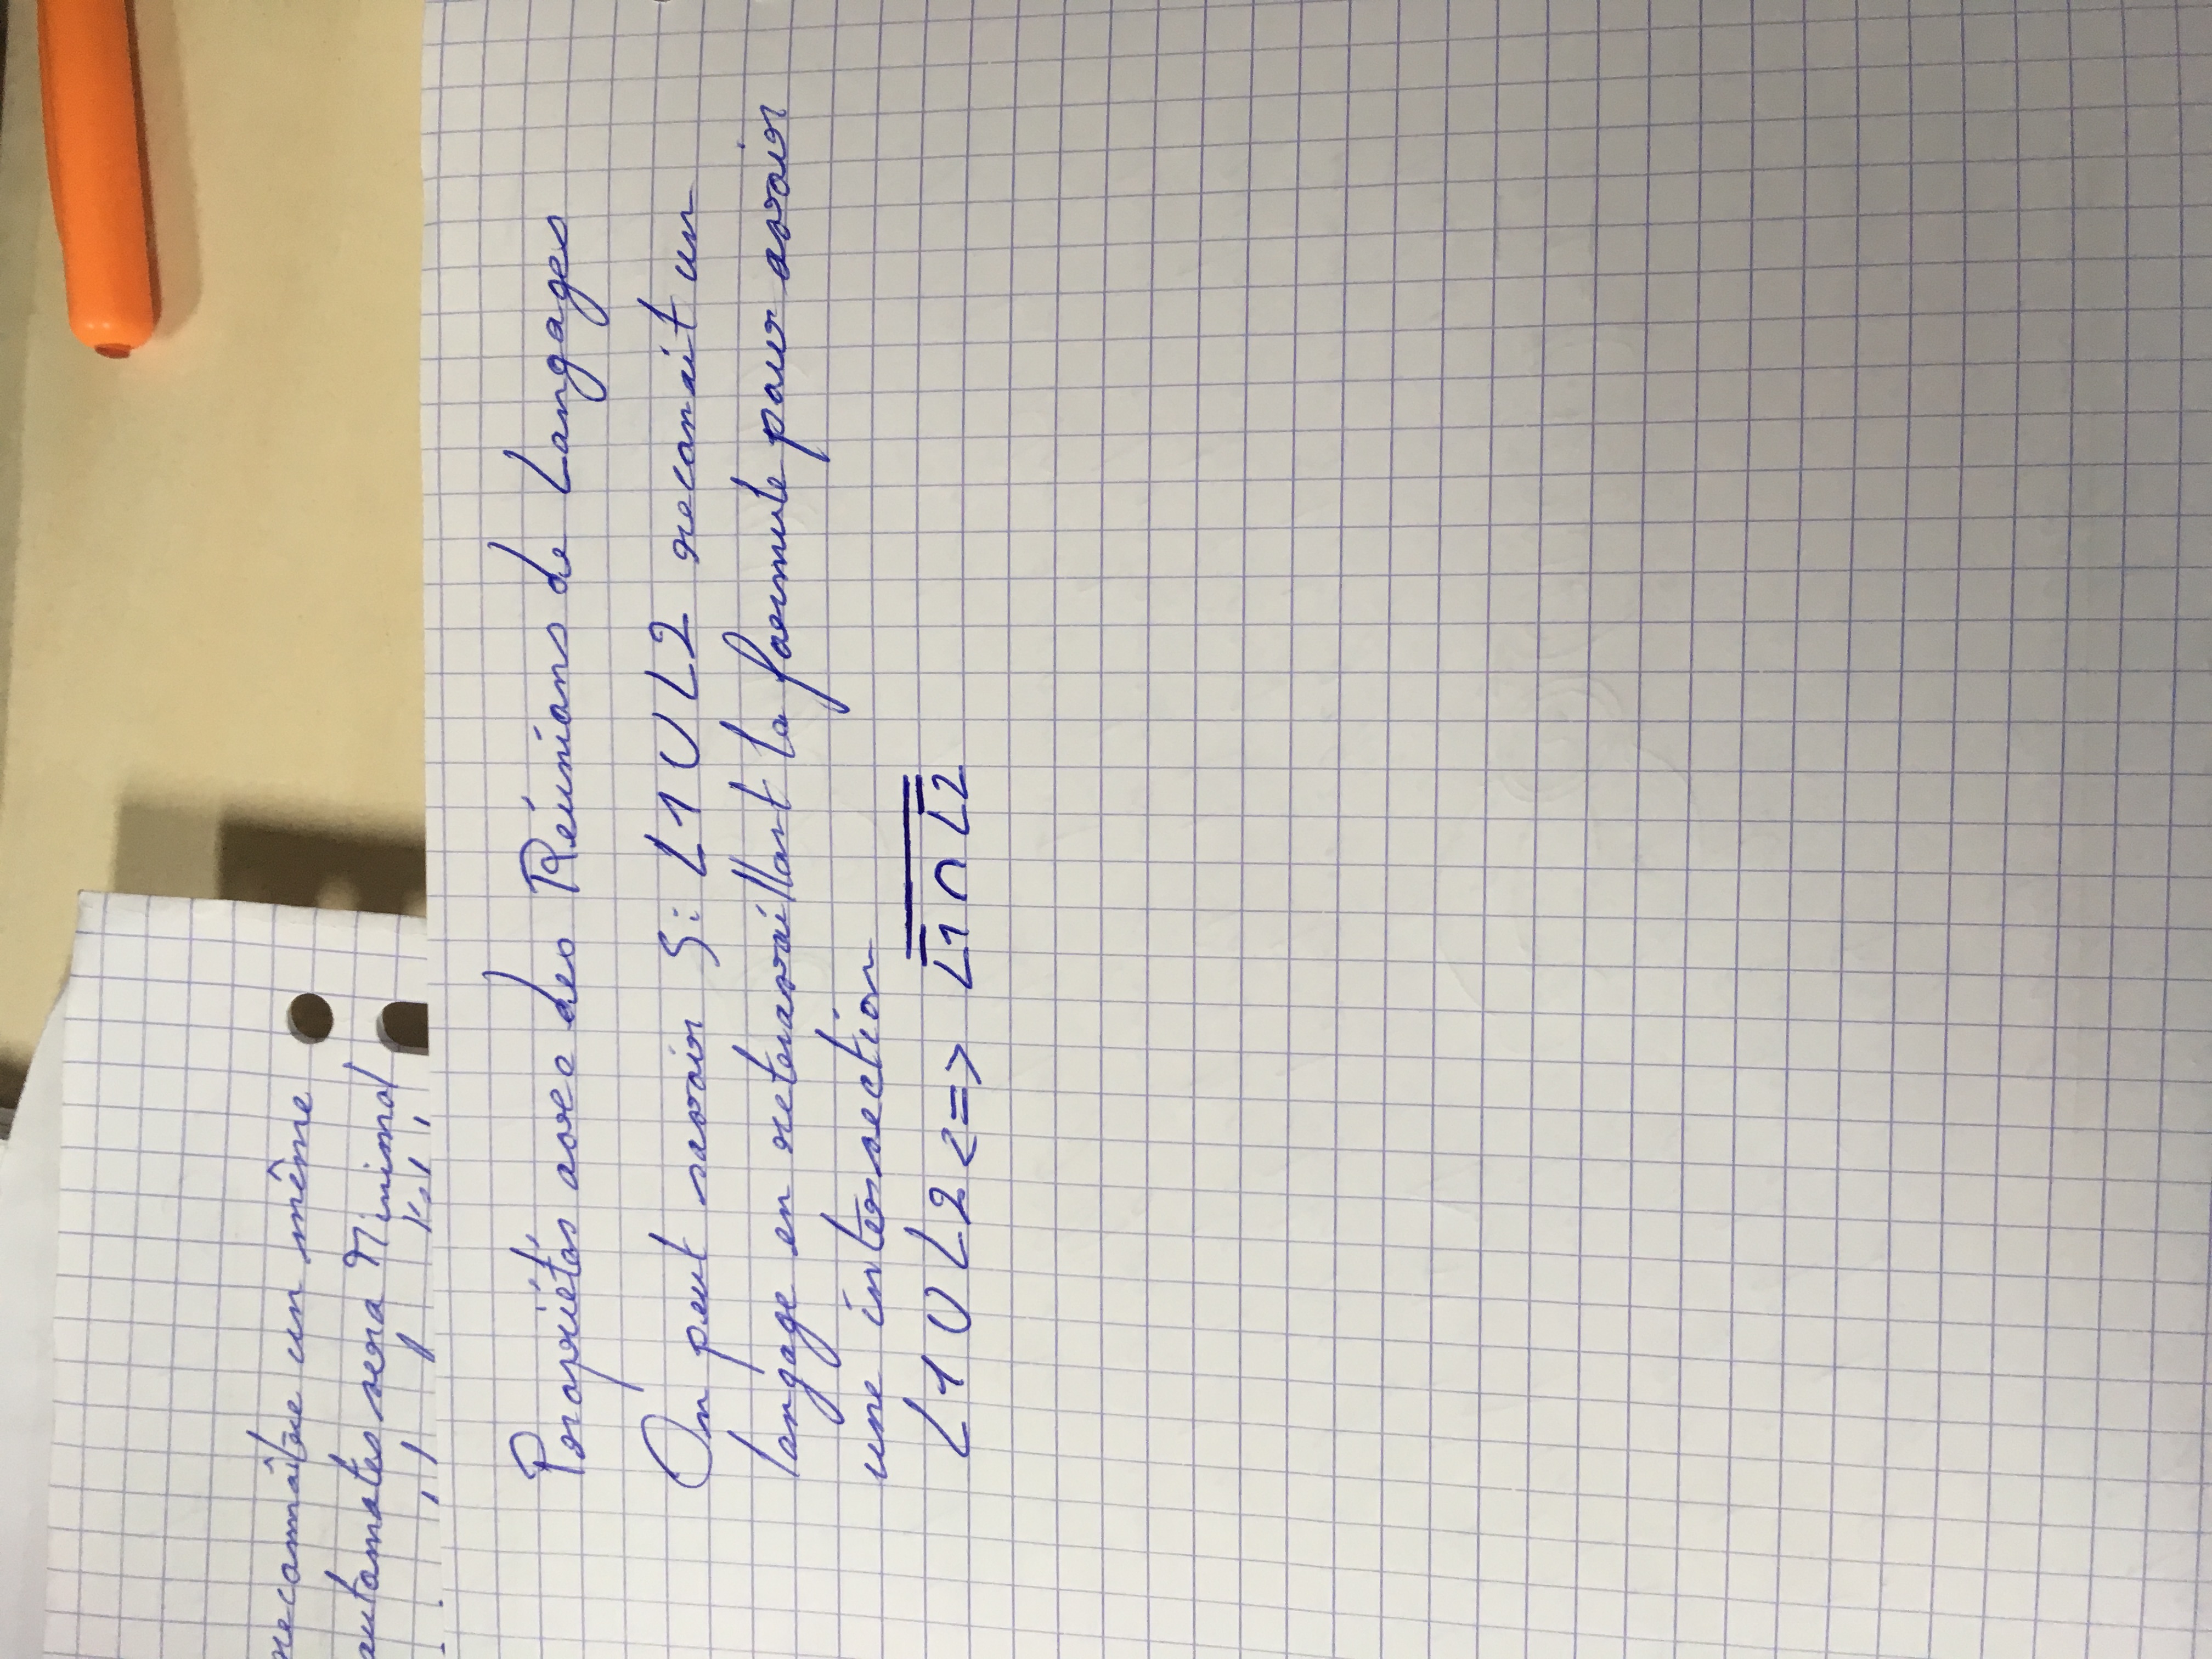 reconnaître un même
automates sera Minimal
Propriétés avec des Réunions de Langages
On peut savoir Si L1 ∪ L2 reconait un
langage en retravaillant la formule pour avoir
une intersection
L1 ∪ L2 <=> \overline{\overline{L1} ∩ \overline{L2}}